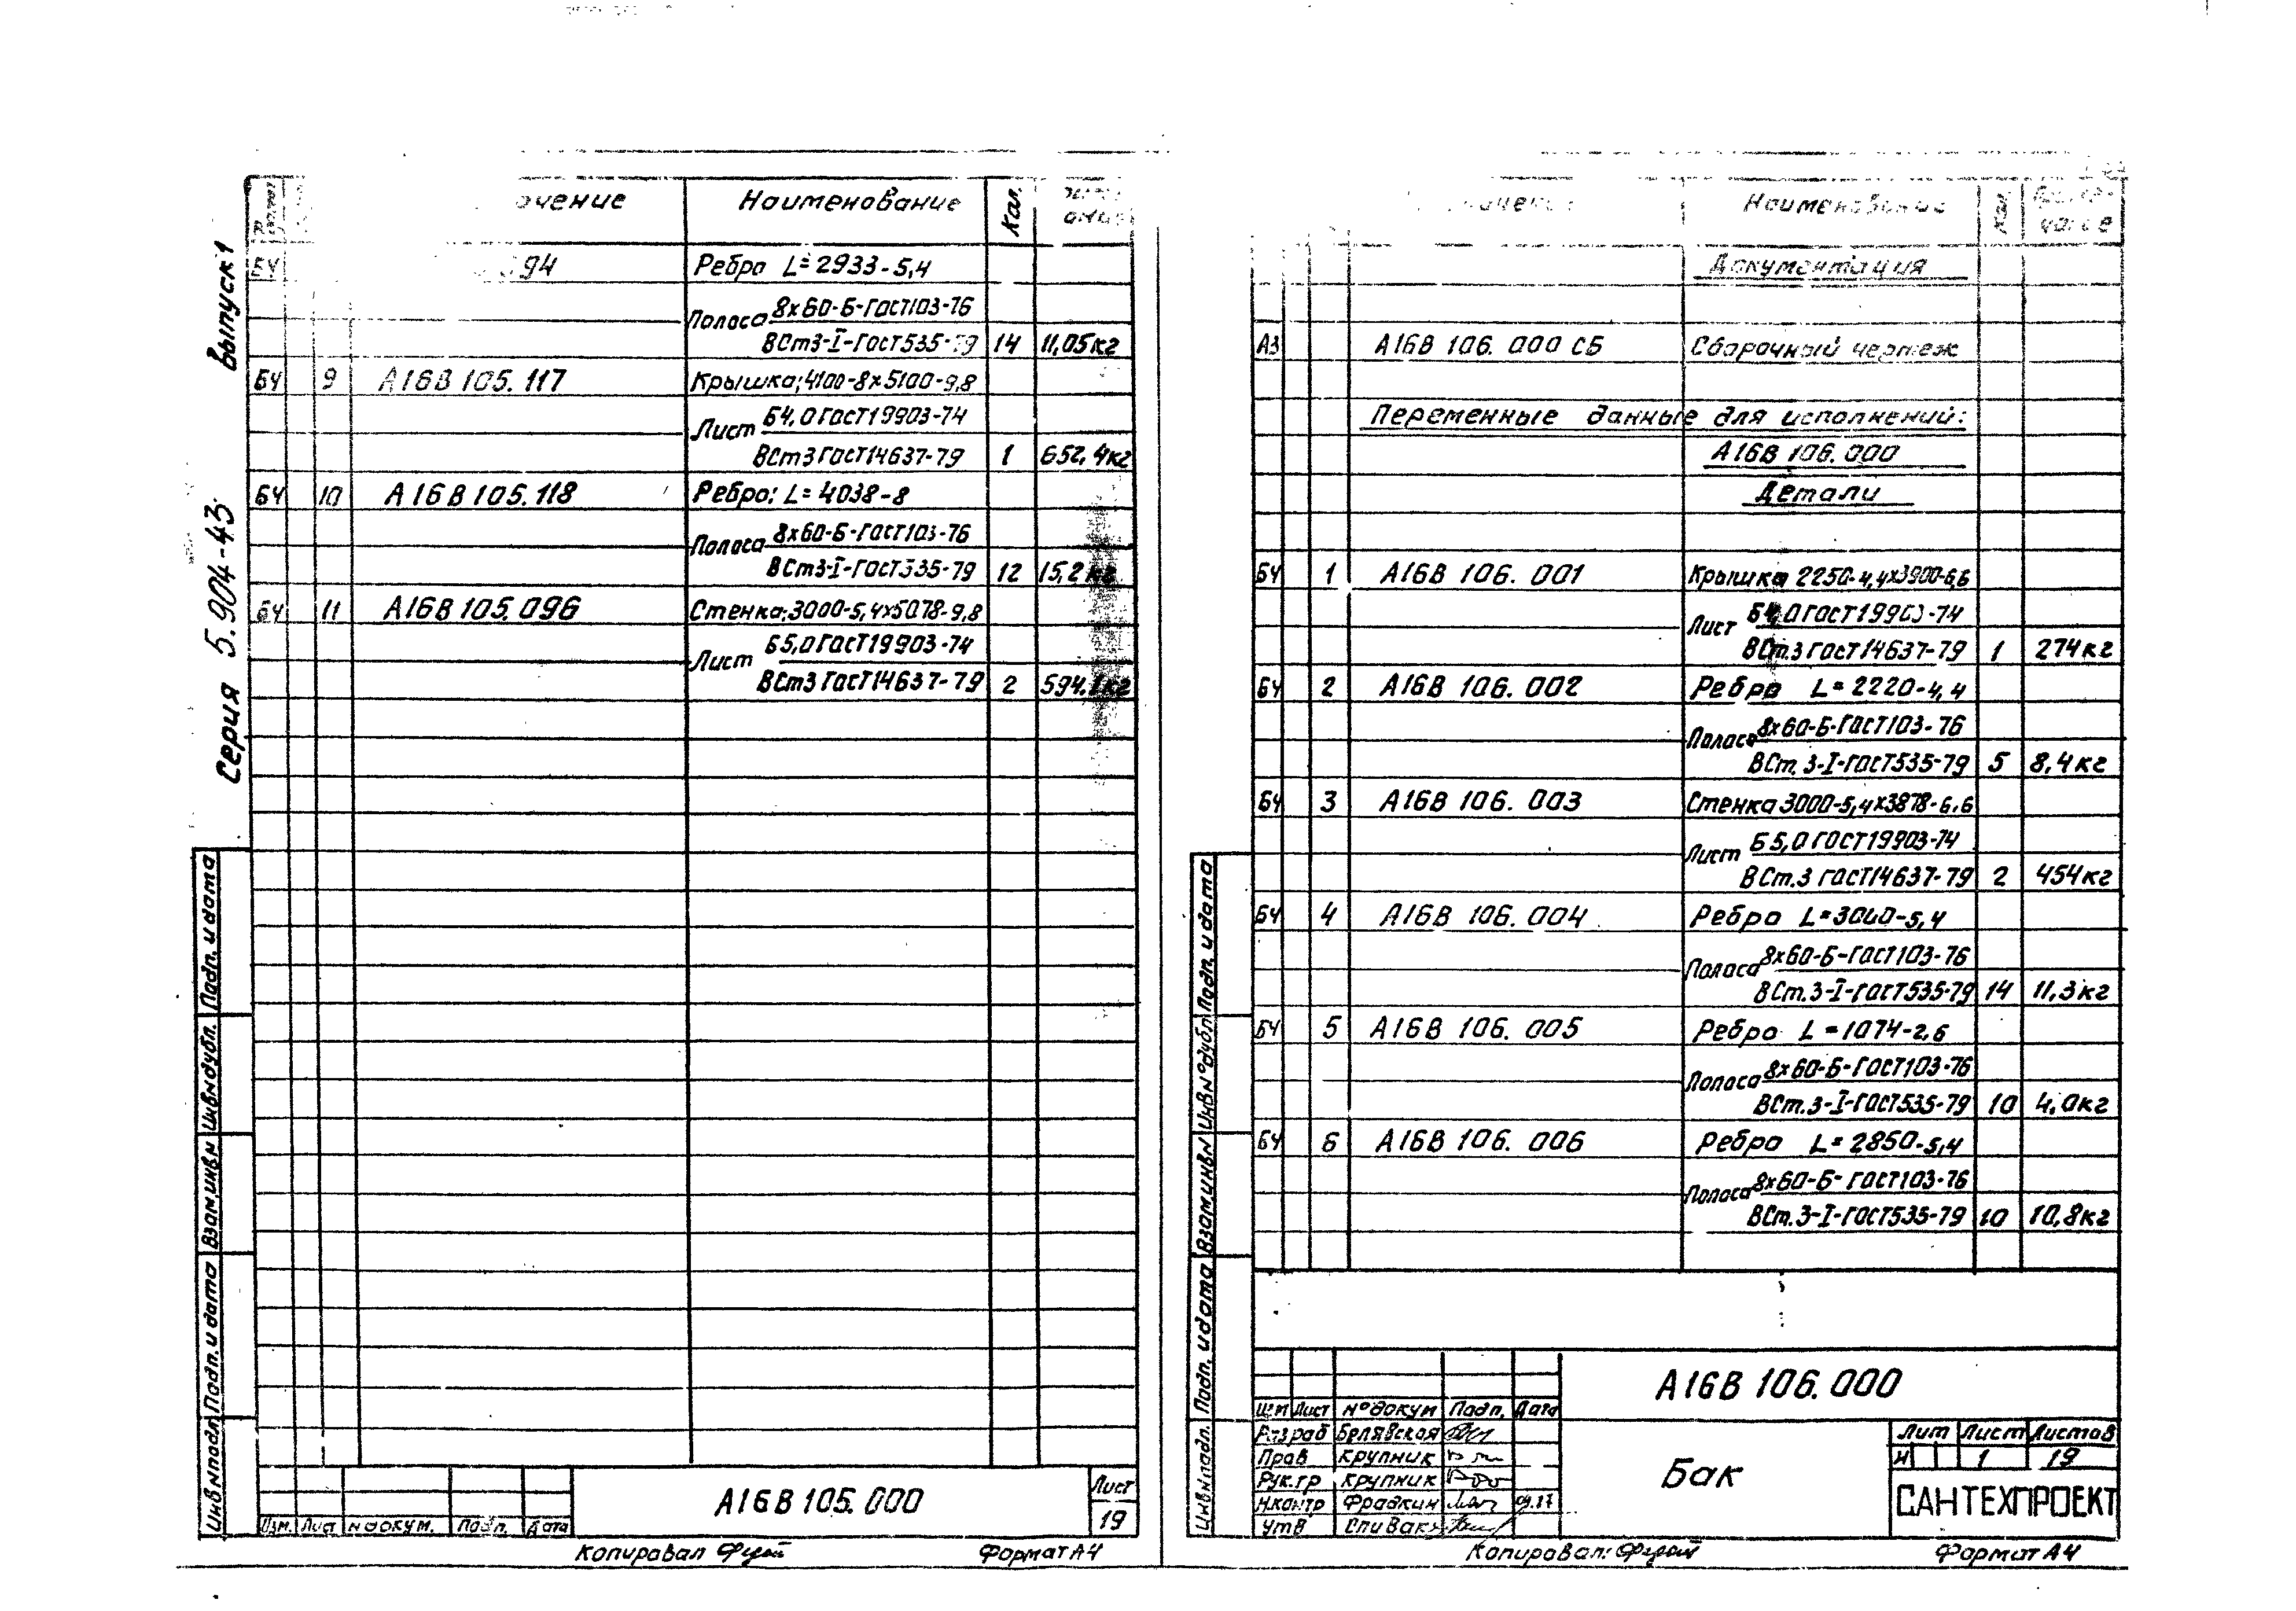 Серия 5.904-43 Выпуск 1
Наименование Кол.
БЧ 94 Ребро L=2933-5,4
Полоса 8х60-Б-ГОСТ103-76
ВСт3-I-ГОСТ535-79 14 11,05кг
БЧ 9 А16В 105.117 Крышка; 4100-8х5100-9,8
Лист Б4,0 ГОСТ19903-74
ВСт3 ГОСТ14637-79 1 652,4кг
БЧ 10 А16В 105.118 Ребро: L=4038-8
Полоса 8х60-Б-ГОСТ103-76
ВСт3-I-ГОСТ535-79 12 15,2кг
БЧ 11 А16В 105.096 Стенка; 3000-5,4х5078-9,8
Лист Б5,0 ГОСТ19903-74
ВСт3 ГОСТ14637-79 2 594,1кг
Инв.№подл. Подп. и дата Взам.инв№ Инв№дубл. Подп. и дата
Изм. Лист №докум. Подп. Дата
А16В 105.000
Лист
19
Копировал
Формат А4
Наименование Кол
Документация
А3 А16В 106.000 СБ Сборочный чертеж
Переменные данные для исполнений:
А16В 106.000
Детали
БЧ 1 А16В 106.001 Крышка 2250-4,4х3900-6,6
Лист Б4,0 ГОСТ19903-74
ВСт.3 ГОСТ14637-79 1 274кг
БЧ 2 А16В 106.002 Ребро L=2220-4,4
Полоса 8х60-Б-ГОСТ103-76
ВСт.3-I-ГОСТ535-79 5 8,4кг
БЧ 3 А16В 106.003 Стенка 3000-5,4х3878-6,6
Лист Б5,0 ГОСТ19903-74
ВСт.3 ГОСТ14637-79 2 454кг
БЧ 4 А16В 106.004 Ребро L=3000-5,4
Полоса 8х60-Б-ГОСТ103-76
ВСт.3-I-ГОСТ535-79 14 11,3кг
БЧ 5 А16В 106.005 Ребро L=1074-2,6
Полоса 8х60-Б-ГОСТ103-76
ВСт.3-I-ГОСТ535-79 10 4,0кг
БЧ 6 А16В 106.006 Ребро L=2850-5,4
Полоса 8х60-Б-ГОСТ103-76
ВСт.3-I-ГОСТ535-79 10 10,8кг
Инв№подл. Подп. и дата Взам.инв№ Инв№дубл Подп. и дата
А16В 106.000
Изм Лист №докум Подп. Дата
Разраб Белявская
Пров Крупник
Рук.гр Крупник
Н.контр Фрадкин
Утв Спивак
Бак
Лит Лист Листов
И 1 19
САНТЕХПРОЕКТ
Копировал:
Формат А4